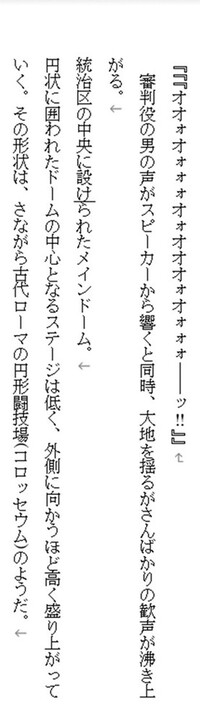 『『『オオォオォォオォオォオオオォオォォ――ッ!!』』』←
　審判役の男の声がスピーカーから響くと同時、大地を揺るがさんばかりの歓声が沸き上
がる。←
統治区の中央に設けられたメインドーム。←
円状に囲われたドームの中心となるステージは低く、外側に向かうほど高く盛り上がって
いく。その形状は、さながら古代ローマの円形闘技場(コロッセウム)のようだ。←